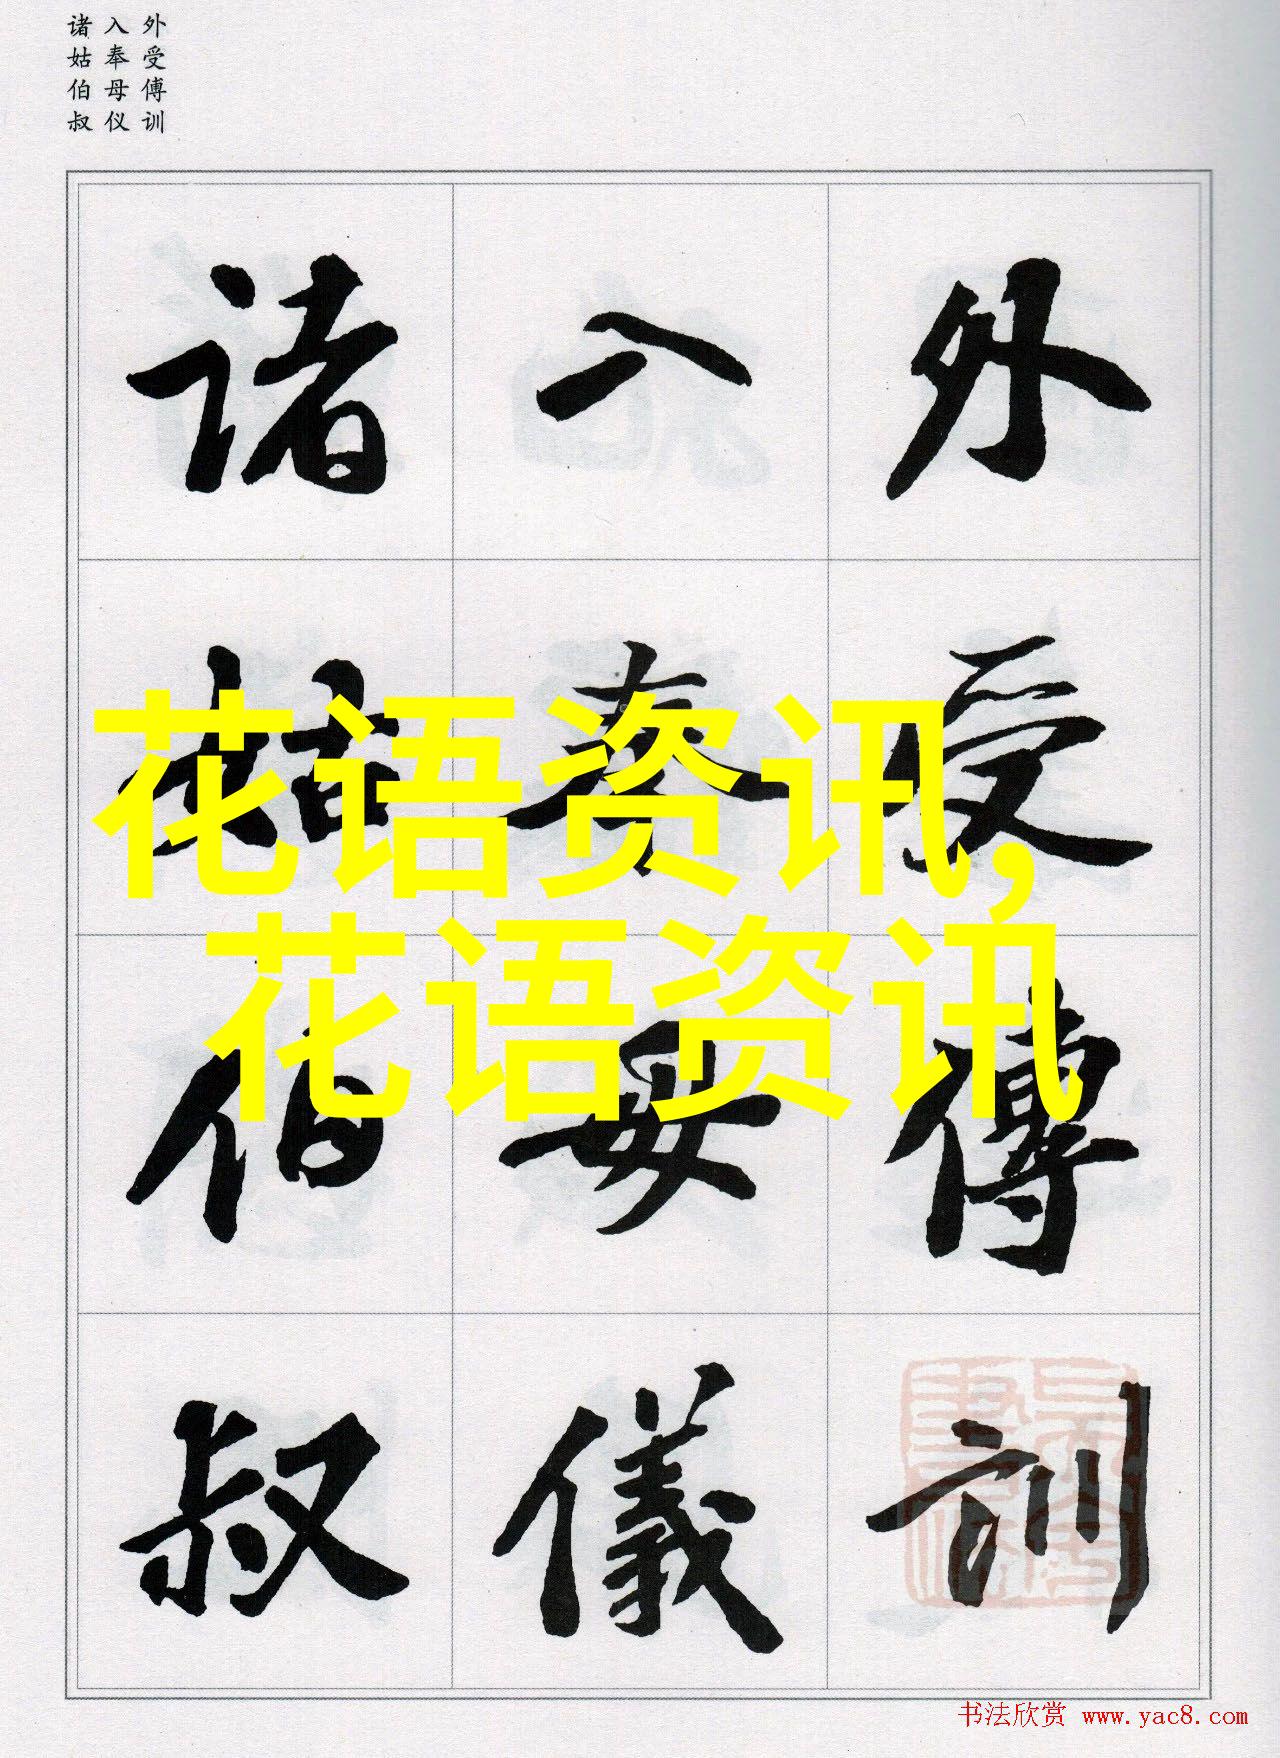 外受傅训
入奉母仪
诸姑伯叔
外受傅訓
入奉母儀
诸姑伯叔
花语资讯,
花语资讯
书法欣赏 www.yac8.com